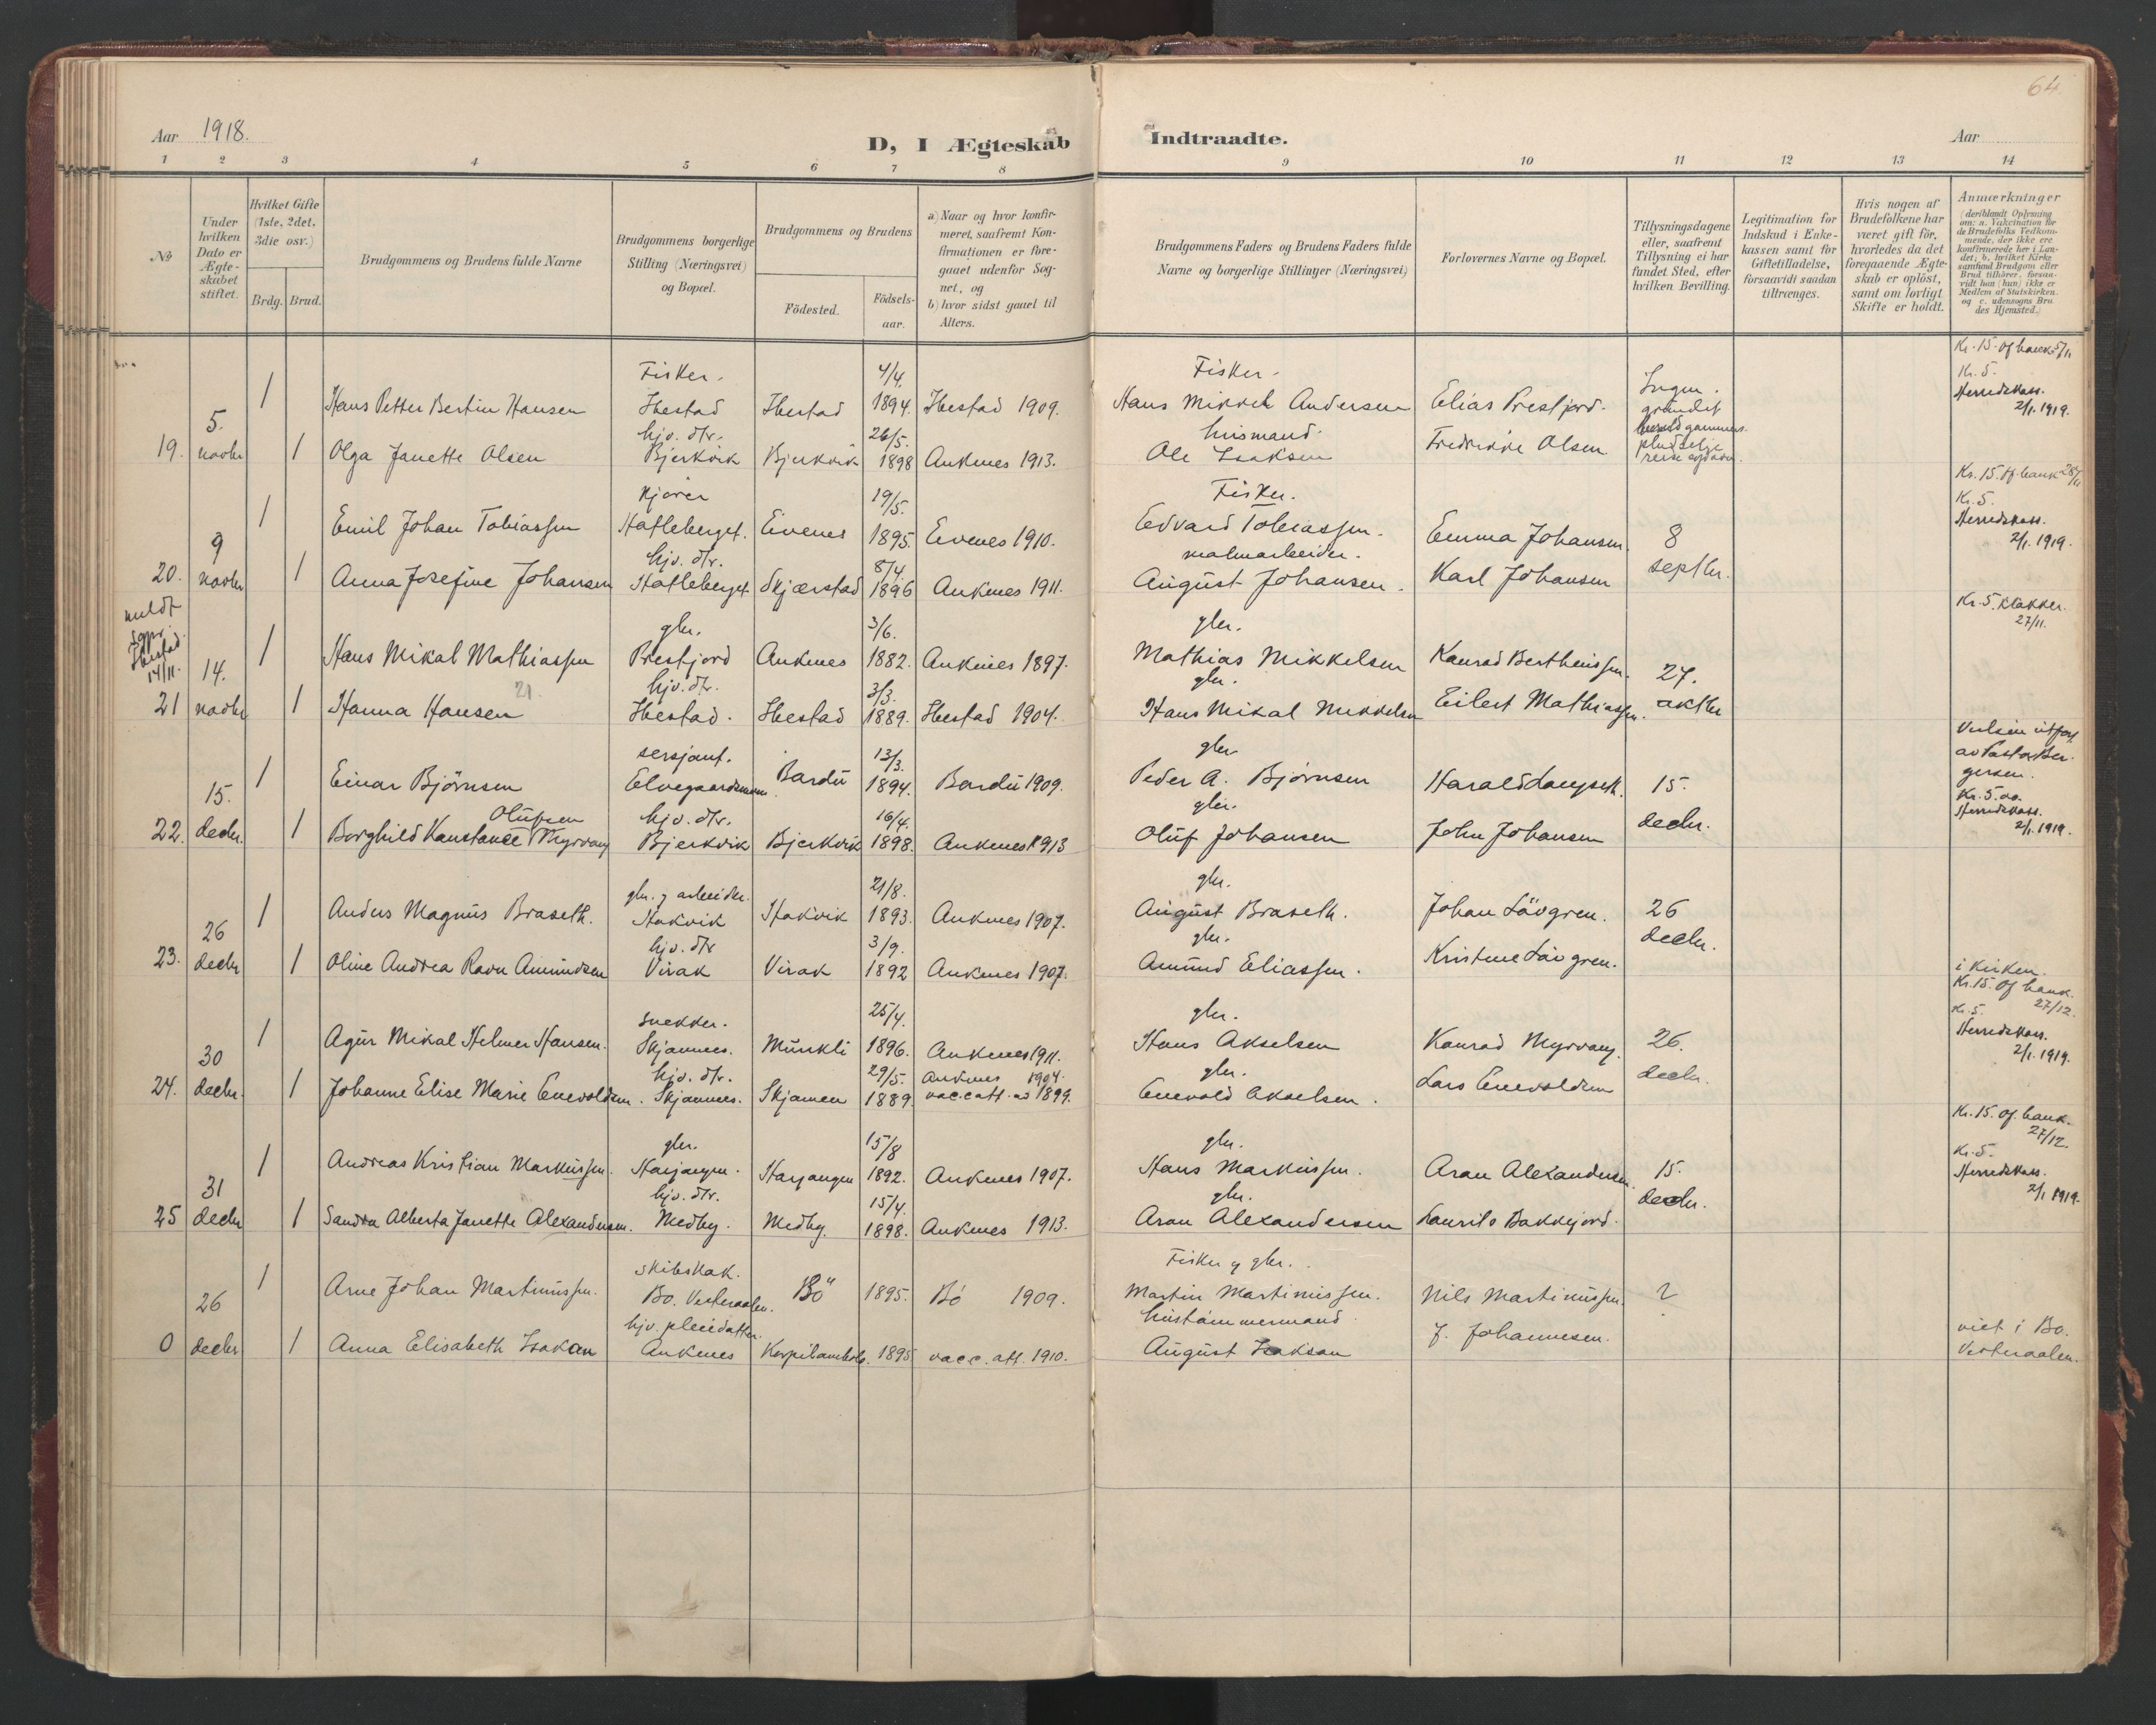 64.
Aar 1918.
D, I Ægteskab Indtraadte.
Aar
1 2 3 4 5 6 7 8 9 10 11 12 13 14
No
Under hvilken Dato er Ægteskabet stiftet.
Hvilket Gifte (1ste, 2det, 3die osv.)
Brdg. Brud.
Brudgommens og Brudens fulde Navne
Brudgommens borgerlige Stilling (Næringsvei) og Bopæl.
Brudgommens og Brudens
Födested.
Födsels-aar.
a) Naar og hvor konfir-
meret, saafremt Kon-
firmationen er fore-
gaaet udenfor Sog-
net, og
b) hvor sidst gaaet til
Alters.
Brudgommens Faders og Brudens Faders fulde
Navne og borgerlige Stillinger (Næringsvei)
Forlovernes Navne og Bopæl.
Tillysningsdagene
eller, saafremt
Tillysning ei har
fundet Sted, efter
hvilken Bevilling.
Legitimation for
Indskud i Enke-
kassen samt for
Giftetilladelse,
forsaavidt saadan
tiltrænges.
Hvis nogen af
Brudefolkene har
været gift för,
hvorledes da det
foregaaende Ægte-
skab er oplöst,
samt om lovligt
Skifte er holdt.
Anmærkninger
(deriblandt Oplysning
om: a. Vakcination for
de Brudefolks Vedkom-
mende, der ikke ere
konfirmerede her i Lan-
det; b. hvilket Kirke-
samfund Brudgom eller
Brud tilhörer, forsaa-
vidt han (hun) ikke er
Medlem af Statskirken.
og c. udensogns Bru
des Hjemsted.)
Fisker. 4/4. Fisker. Kr. 15. Of bank 5/11
1 Hans Petter Bertin Hansen Ibestad Ibestad 1894. Ibestad 1909. Hans Mikkel Andersen Elias Prestjord. Ingen. Kr. 5. Herredskass. 2/1. 1919.
5. hjv. dtr. 26/5. husmand.
19. novbr 1 Olga Janette Olsen Bjerkvik Bjerkvik 1898 Ankenes 1913. Ole Isaksen Fredrikke Olsen
Kjører 19/5. Fisker. Kr. 15. Of. bank 28/11
1 Emil Johan Tobiassen Hatleberget. Evenes 1895. Evenes 1910. Edvard Tobiassen. Emma Johansen. 8 Kr. 5. Herredskass. 2/1. 1919.
9 hjv. dtr. 8/4. malmarbeider.
20. novbr 1 Anna Josefine Johansen Hatleberget. Skjærstad 1896 Ankenes 1911. August Johansen. Karl Johansen septbr.
meldt sgpr. Ibestad 14/11.
gbr. 3/6. gbr. Kr. 5. klokker. 27/11.
1 Hans Mikal Mathiassen Prestjord Ankenes 1882. Ankenes 1897. Mathias Mikkelsen Konrad Bertheussen. 27.
14. hjv. dtr. 3/3. gbr.
21 novbr 1 Hanna Hansen 21. Ibestad. Ibestad 1889. Ibestad 1904. Hans Mikal Mikkelsen Eilert Mathiassen. oktbr
sersjant. 13/3. gbr Vielsen utført av Pastor Bergersen.
1 Einar Björnsen Elvegaardsmoen Bardu 1894. Bardu 1909. Peder A. Bjørnsen Harald Langseth. 15.
15. Olufsen hjv. dtr. 16/4. gbr. Kr. 5. oo. Herredskass. 2/1. 1919.
22. decbr. 1 Borghild Konstanse Myrvang Bjerkvik Bjerkvik 1898. Ankenes 1913 Oluf Johansen John Johansen decbr.
gbr. og arbeider. 21/8. gbr.
1 Anders Magnus Braseth. Haakvik Haakvik 1893. Ankenes 1907. August Braseth. Johan Lövgren. 26
26 hjv. dtr 3/9. gbr. decbr.
23. decbr 1 Oline Andrea Ravn Amundsen Virak Virak 1892 Ankenes 1907. Amund Eliassen. Kristine Lövgren.
i Kirken.
snekker. 25/4. gbr. Kr. 15. Of bank. 27/12.
1 Agur Mikal Helmer Hansen. Skjomnes. Munkli 1896. Ankenes 1911. Hans Akselsen Konrad Myrvang. 26. Kr. 5. Herredskass. 2/1. 1919.
30 hjv. dtr. 29/5. Ankenes 1904. gbr. decbr.
24. decbr. 1 Johanne Elise Marie Enevoldsen. Skjomnes. Skjomen 1889. vacc att. av 1899. Enevold Akselsen. Lars Enevoldsen
gbr. 15/8 gbr. Kr. 15. Of. bank. 27/12.
1 Andreas Kristian Markussen. Harjangen. Harjangen 1892. Ankenes 1907. Hans Markussen. Aron Alexandersen. 15. Kr. 5. Herredskass. 2/1 1919.
31 hjv. dtr. 15/4. gbr. decbr.
25 decbr 1 Sandra Alberta Janette Alexandersen. Medby. Medby. 1898. Ankenes 1913. Aron Alexandersen Laurits Bakkejord.
skibskok. Fisker og gbr.
1 Arne Johan Martinussen. Bø. Vesteraalen. Bö 1895. Bö 1909. Martin Martinussen. Nils Martinussen. ?
26 hjv. pleiedatter.
0 decbr 1 Anna Elisabeth Isakson Ankenes 1895 vacc. att. 1910. August Isakson J. Johannesen. viet i Bø. Vesteraalen.